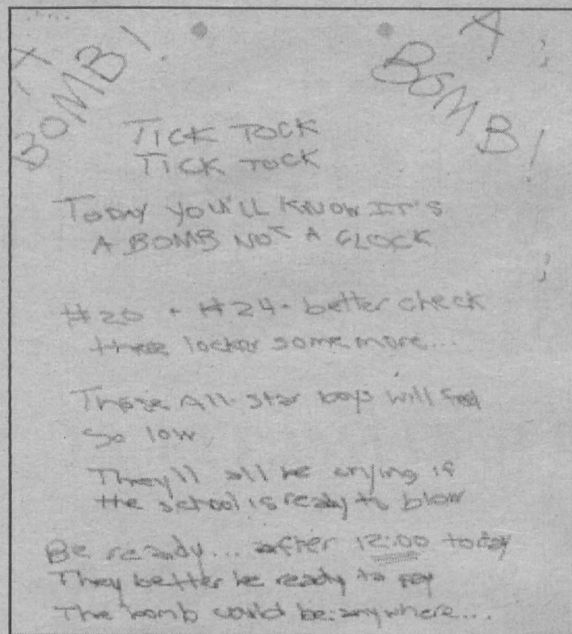 A BOMB!
A BOMB!
TICK TOCK
TICK TOCK
TODAY YOU'LL KNOW IT'S
A BOMB NOT A CLOCK
#20 + #24 - better check
locker some more...
Those All-Star boys will
so low
They'll all be crying if
the school is ready to blow
Be ready... after 12:00 today
They better be ready to pay
The bomb could be anywhere...